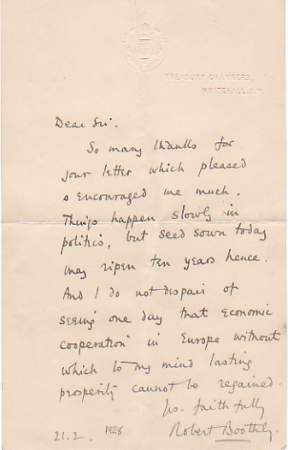 TREASURY CHAMBERS,
WHITEHALL, S.W.
Dear Sir.
So many thanks for
your letter which pleased
& encouraged me much.
Things happen slowly in
politics, but seed sown today
may ripen ten years hence.
And I do not despair of
seeing one day that economic
cooperation in Europe without
which to my mind lasting
prosperity cannot be regained.
Yrs. faithfully
Robert Boothby.
21.2. 1928